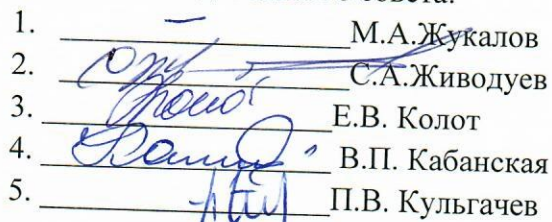 совета:
1. М.А.Жукалов
2. С.А.Живодуев
3. Е.В. Колот
4. В.П. Кабанская
5. П.В. Кульгачев